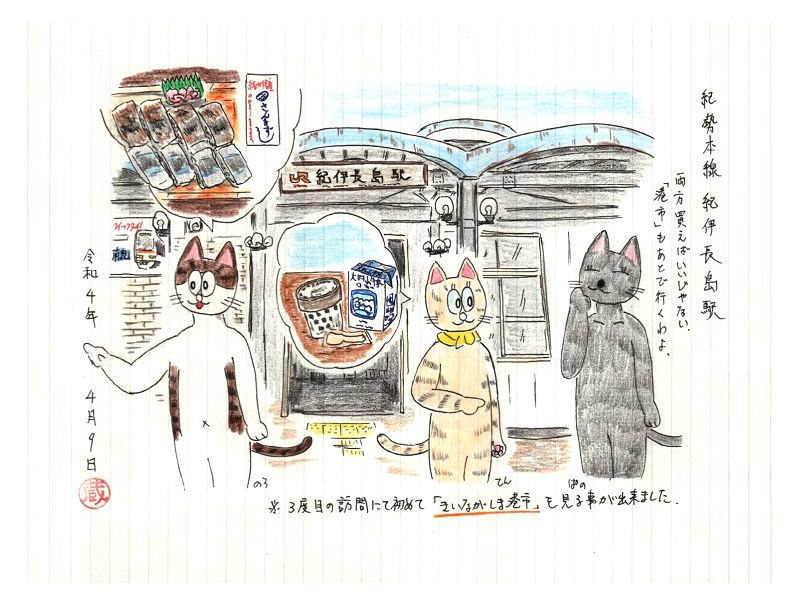 紀勢本線 紀伊長島駅
両方買えばいいじゃない。
「港市」もあとで行くわよ。
さんますし
JR 紀伊長島駅
令和4年 4月9日
蔵
のろ
てん
ぱの
※3度目の訪問にて初めて「きいながしま港市」を見る事が出来ました.